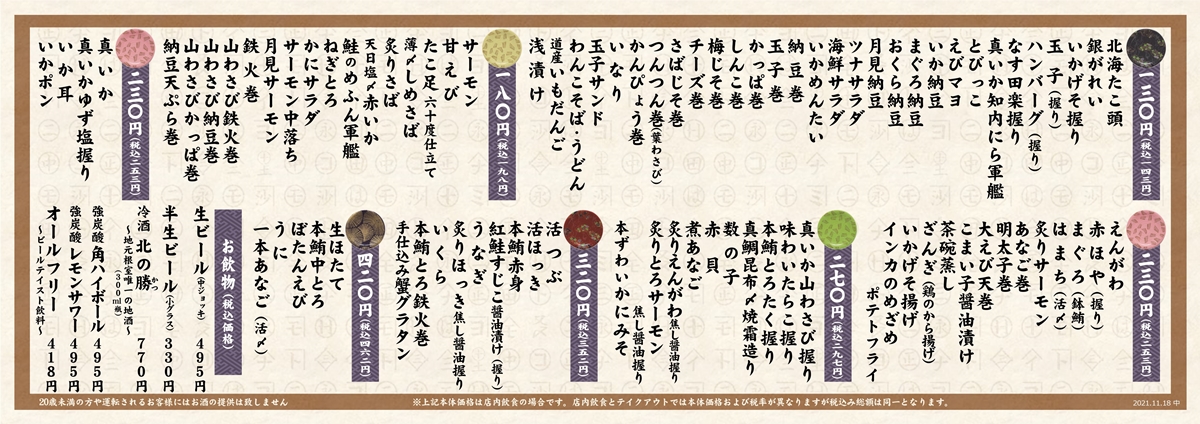 一三〇円(税込一四三円)
北海たこ頭
銀がれい
いかげそ握り
玉子(握り)
ハンバーグ(握り)
なす田楽握り
真いか知内にら軍艦
とびっこ
えびマヨ
いか納豆
まぐろ納豆
おくら納豆
月見納豆
ツナサラダ
海鮮サラダ
いかめんたい
納豆巻
玉子巻
かっぱ巻
しんこ巻
梅じそ巻
チーズ巻
さばじそ巻
つんつん巻(葉わさび)
かんぴょう巻
いなり
玉子サンド
わんこそば・うどん
道産いもだんご
浅漬け
一八〇円(税込一九八円)
サーモン
甘えび
たこ足 六十度仕立て
薄〆しめさば
炙りさば
天日塩〆赤いか
鮭のめふん軍艦
ねぎとろ
かにサラダ
サーモン中落ち
月見サーモン
鉄火巻
山わさび鉄火巻
山わさび納豆巻
山わさびかっぱ巻
納豆天ぷら巻
二三〇円(税込二五三円)
真いか
真いかゆず塩握り
いか耳
いかポン
二三〇円(税込二五三円)
えんがわ
赤ほや(握り)
まぐろ(鉢鮪)
はまち(活〆)
炙りサーモン
あなご巻
明太子巻
大えび天巻
こまい子醤油漬け
茶碗蒸し
ざんぎ(鶏のから揚げ)
いかげそ揚げ
インカのめざめ
ポテトフライ
二七〇円(税込二九七円)
真いか山わさび握り
味わいたらこ握り
本鮪とろたく握り
真鯛昆布〆焼霜造り
数の子
赤貝
煮あなご
炙りえんがわ焦し醤油握り
炙りとろサーモン
焦し醤油握り
本ずわいかにみそ
三二〇円(税込三五二円)
活つぶ
活ほっき
本鮪赤身
紅鮭すじこ醤油漬け(握り)
うなぎ
炙りほっき焦し醤油握り
いくら
本鮪とろ鉄火巻
手仕込み蟹グラタン
四二〇円(税込四六二円)
生ほたて
本鮪中とろ
ぼたんえび
うに
一本あなご(活〆)
お飲物(税込価格)
生ビール(中ジョッキ) 495円
半生ビール(小グラス) 330円
冷酒 北の勝 770円
かつ
(300ml瓶)
～地元根室唯一の地酒～
強炭酸角ハイボール 495円
強炭酸レモンサワー 495円
オールフリー 418円
～ビールテイスト飲料～
20歳未満の方や運転されるお客様にはお酒の提供は致しません
※上記本体価格は店内飲食の場合です。店内飲食とテイクアウトでは本体価格および税率が異なりますが税込み総額は同一となります。
2021.11.18 中